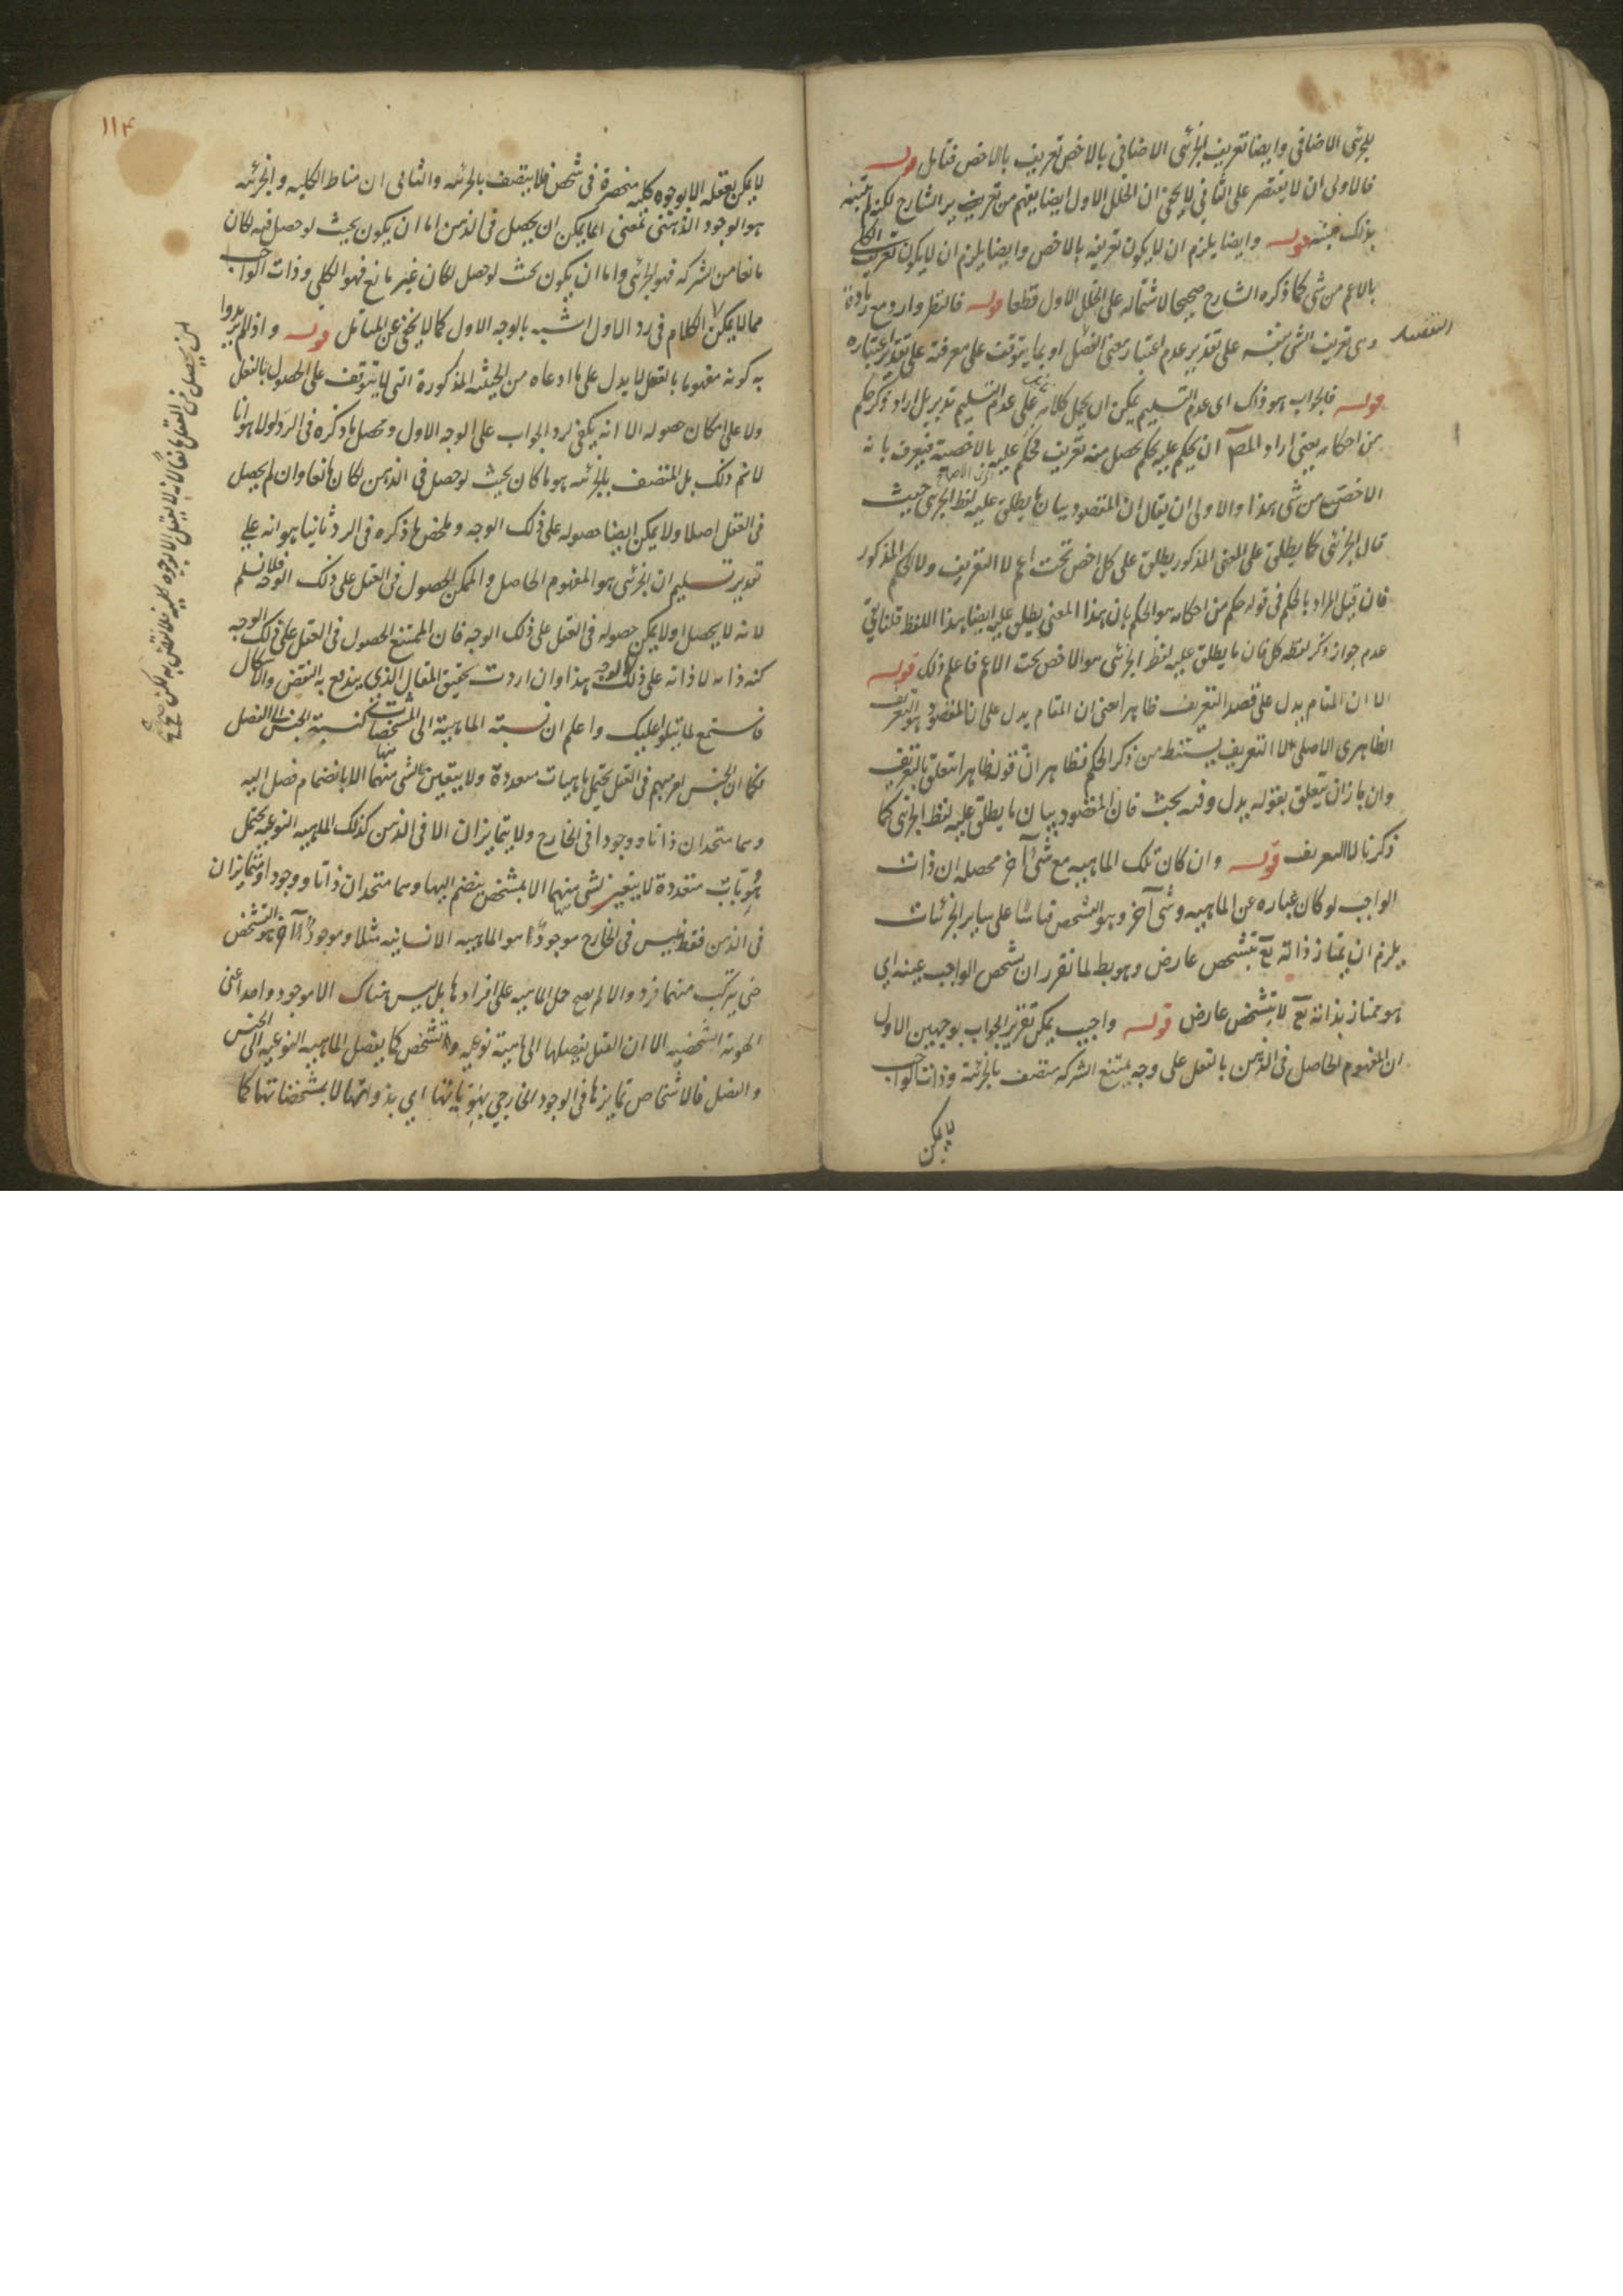 للجزئي الاضافي وايضا تعريف الجزئي الاضافي بالاخص تعريف بالاخص فتامل قوله
فالاولى ان لا يقتصر على الثاني لا يخفى ان الخلل الاول ايضا يفهم من تعرير الشارح لكنه لم يتنبه
بذلك قوله وايضا يلزم ان لا يكون تعريفه بالاخص وايضا يلزم ان لا يكون تعريف الكلي
بالاعم من شي كما ذكره الشارح صحيحا لاشتماله على الخلل الاول قطعا قوله فالنظر وارد مع زيادة
وهى تعريف الشي بنفسه على تقدير عدم اعتبار معنى الفضل او بما يتوقف على معرفته على تقدير اعتباره
قوله فالجواب هو ذلك اى عدم التسليم يمكن ان يحمل كلامه على عدم التسليم تدبر بل اراد ذكر حكم
من احكامه يعنى اراد المص ان يحكم عليه بحكم يحصل منه تعريف فحكم عليه بالاخصية فيعرف بانه
الاخص من شى هذا والاولى ان يقال ان المقصود بيان ما يطلق عليه لفظ الجزئى حيث
قال الجزئى كما يطلق على المعنى المذكور يطلق على كل اخص تحت اعم لا التعريف ولا الحكم المذكور
فان قيل المراد بالحكم فى قوله حكم من احكامه هو الحكم بان هذا المعنى يطلق عليه ايضا هذا اللفظ قلنا بقى
عدم جواز ذكر لفظه كل فان ما يطلق عليه لفظ الجزئى هو الاخص تحت الاعم فاعلم ذلك قوله
الا ان المقام يدل على قصد التعريف ظاهرا يعنى ان المقام يدل على ان المقصود هو التعريف
الظاهرى الاصلى لا التعريف يستنبط من ذكر الحكم فظاهر ان قوله ظاهرا متعلق بالتعريف
وان جاز ان يتعلق بقوله يدل وفيه بحث فان المقصود بيان ما يطلق عليه لفظ الجزئى كما
ذكرنا لا التعريف قوله وان كان تلك الماهيه مع شى آخر محصله ان ذات
الواجب لو كان عباره عن الماهيه وشى آخر وهو التشخص قياسًا على ساير الجزئيات
يلزم ان يمتاز ذاته تع بتشخص عارض وهو بط لما تقرر ان تشخص الواجب عينه اي
هو ممتاز بذاته تع لا بتشخص عارض قوله واجيب يمكن تقرير الجواب بوجهين الاول
ان المفهوم الحاصل فى الذهن بالفعل على وجه يمتنع الشركه متصف بالجزئية وذات الواجب
لا يمكن
١١٤
لا يمكن تعقله الا بوجوه كليه منحصرة فى شخص فلا يتصف بالجزئيه والثانى ان مناط الكليه والجزئيه
هو الوجود الذهنى بمعنى ان ما يمكن ان يحصل فى الذهن اما ان يكون بحيث لو حصل فيه لكان
مانعا من الشركه فهو الجزئى واما ان يكون بحيث لو حصل لكان غير مانع فهو الكلى وذات الواجب
مما لا يمكن الكلام فى رد الاول اشبه بالوجه الاول كما لا يخفى عن المتامل قوله واذا لم يريدوا
به كونه مفهوما بالفعل لا يدل على ما ادعاه من الحيثيه المذكورة التى لا يتوقف على الحصول بالفعل
ولا على امكان حصوله الا انه يكفى لرد الجواب على الوجه الاول ومحصل ما ذكره فى الرد اولا هو انا
لا نم ذلك بل المتصف بالجزئيه هو ما كان بحيث لو حصل فى الذهن لكان مانعا وان لم يحصل
فى العقل اصلا ولا يمكن ايضا حصوله على ذلك الوجه وملخص ما ذكره فى الرد ثانيا هو انه على
تقدير تسليم ان الجزئى هو المفهوم الحاصل والممكن الحصول فى العقل على ذلك الوجه فلا نسلم
لانه لا يحصل او لا يمكن حصوله فى العقل على ذلك الوجه فان الممتنع الحصول فى العقل على ذلك الوجه
كنه ذاته لا ذاته على ذلك الوجه هذا وان اردت تحقيق المقال الذى يندفع به النقض والاشكال
فاستمع لما يتلو عليك واعلم ان نسبة الماهية الى المشخصات كنسبة الجنس الى الفصل
فكما ان الجنس امر مبهم فى العقل يحتمل ماهيات متعددة ولا يتعين لشى منها الا بانضمام فصل اليه
وهما متحدان ذاتا ووجودا فى الخارج ولا يتمايزان الا فى الذهن كذلك الماهيه النوعيه يحتمل
هويات متعددة لا يتعين لشى منها الا بمشخص ينضم اليها وهما متحدان ذاتا ووجودا ويتمايزان
فى الذهن فقط فليس فى الخارج موجود هو الماهيه الانسانيه مثلا وموجود آخر هو التشخص
حتى يتركب منهما فرد والا لم يصح حمل الماهيه على افرادها بل ليس هناك الا موجود واحد اعنى
الهوية الشخصيه الا ان العقل يفصلها الى ماهية نوعيه وتشخص كما يفصل الماهيه النوعيه الى الجنس
والفصل فالاشخاص تمايزها فى الوجود الخارجى بهوياتها اى بذواتها لا بمشخصاتها كما